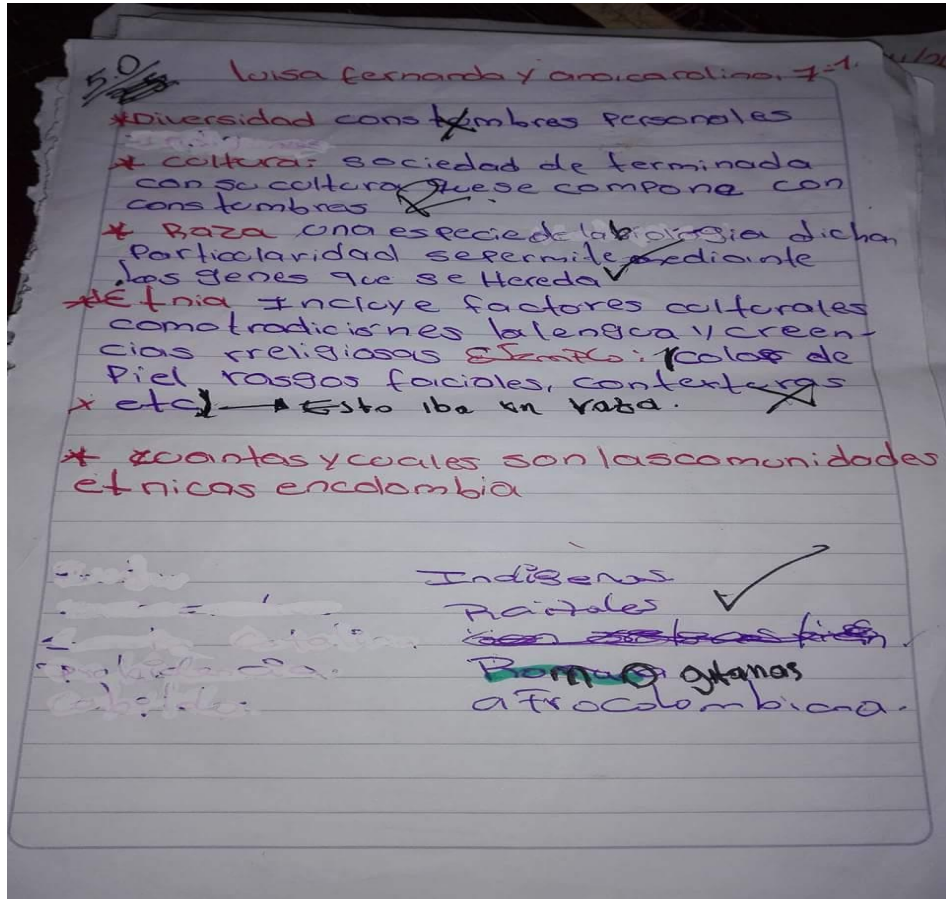 5.0
luisa fernanda y ana carolina. 7-1.
*Diversidad constumbres personales
* cultura: sociedad de terminada
con su cultura que se compone con
constumbres
* Raza una especie de la biologia dicha
particularidad se permite mediante
los genes que se Hereda
*Etnia Incluye factores culturales
como tradiciones la lengua y creen-
cias rreligiosas Ejemplo: (color de
Piel rasgos faciales, contexturas
* etc) → Esto iba en raza.
* ¿cuantas y cuales son las comunidades
etnicas en colombia
Indigenas
Raizales
Rom o gitanas
afrocolombiana.